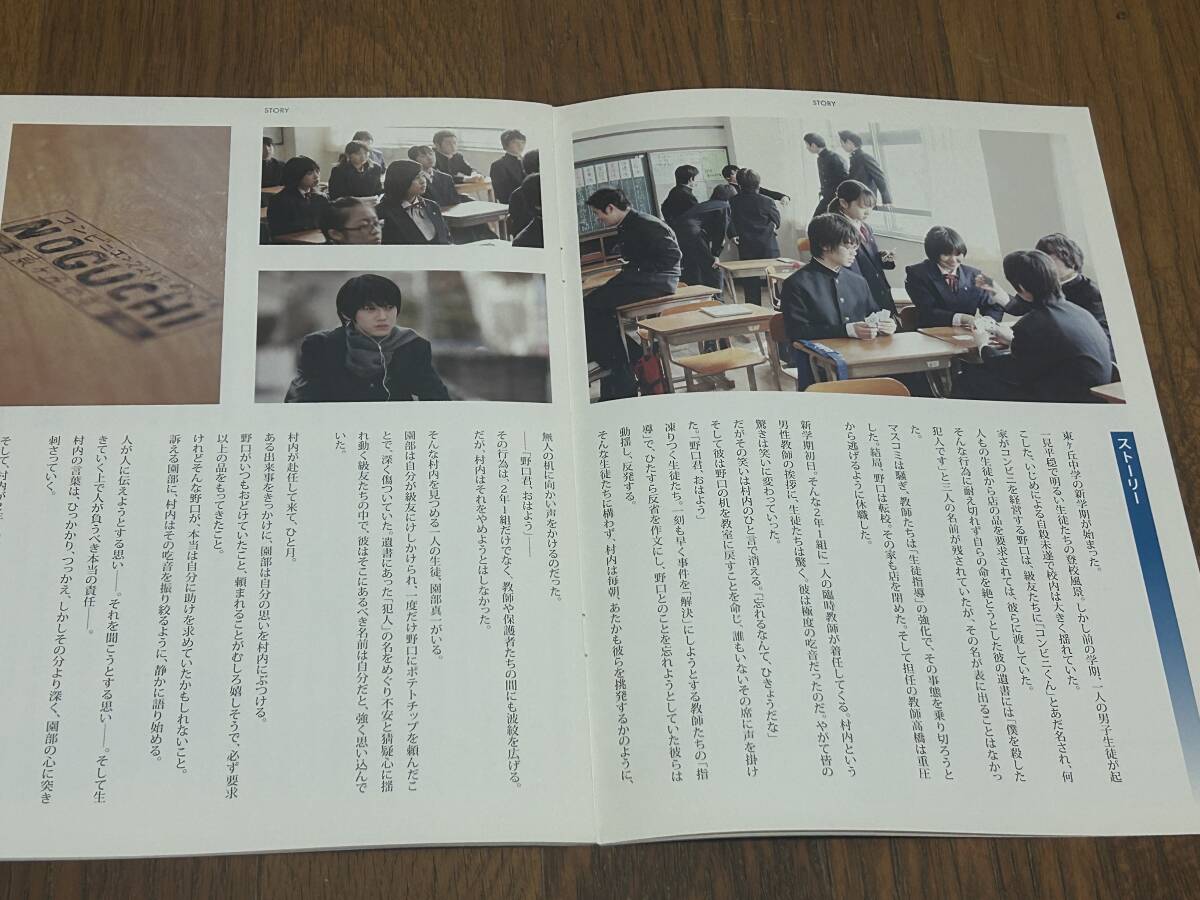 STORY
STORY
コンビニエンスストア
NOGUCHI
ストーリー
東ヶ丘中学の新学期が始まった。
一見平穏で明るい生徒たちの登校風景。しかし前の学期、一人の男子生徒が起
こした、いじめによる自殺未遂で校内は大きく揺れていた。
家がコンビニを経営する野口は、級友たちに「コンビニくん」とあだ名され、何
人もの生徒から店の品を要求されては、彼らに渡していた。
そんな行為に耐え切れず自らの命を絶とうとした彼の遺書には「僕を殺した
犯人です」と三人の名前が残されていたが、その名が表に出ることはなかっ
た。
マスコミは騒ぎ、教師たちは「生徒指導」の強化で、その事態を乗り切ろうと
した。結局、野口は転校。その家も店を閉めた。そして担任の教師高橋は重圧
から逃げるように休職した。
新学期初日。そんな2年1組に一人の臨時教師が着任してくる。村内という
男性教師の挨拶に、生徒たちは驚く。彼は極度の吃音だったのだ。やがて皆の
驚きは笑いに変わっていった。
だがその笑いは村内のひと言で消える。「忘れるなんて、ひきょうだな」
そして彼は野口の机を教室に戻すことを命じ、誰もいないその席に声を掛け
た。「野口君、おはよう」
凍りつく生徒たち。一刻も早く事件を「解決」にしようとする教師たちの「指
導」で、ひたすら反省を作文にし、野口とのことを忘れようとしていた彼らは
動揺し、反発する。
そんな生徒たちに構わず、村内は毎朝、あたかも彼らを挑発するかのように、
無人の机に向かい声をかけるのだった。
――「野口君、おはよう」――
その行為は、2年1組だけでなく、教師や保護者たちの間にも波紋を広げる。
だが、村内はそれをやめようとはしなかった。
そんな村内を見つめる一人の生徒、園部真一がいる。
園部は自分が級友にけしかけられ、一度だけ野口にポテトチップを頼んだこ
とで、深く傷ついていた。遺書にあった「犯人」の名をめぐり不安と猜疑心に揺
れ動く級友たちの中で、彼はそこにあるべき名前は自分だと、強く思い込んで
いた。
村内が赴任して来て、ひと月。
ある出来事をきっかけに、園部は自分の思いを村内にぶつける。
野口がいつもおどけていたこと、頼まれることがむしろ嬉しそうで、必ず要求
以上の品をもってきたこと。
けれどそんな野口が、本当は自分に助けを求めていたかもしれないこと。
訴える園部に、村内はその吃音を振り絞るように、静かに語り始める。
人が人に伝えようとする思い――。それを聞こうとする思い――。そして生
きていく上で人が負うべき本当の責任――。
村内の言葉は、ひっかかり、つっかえ、しかしその分より深く、園部の心に突き
刺さっていく。
そして、村内が2年